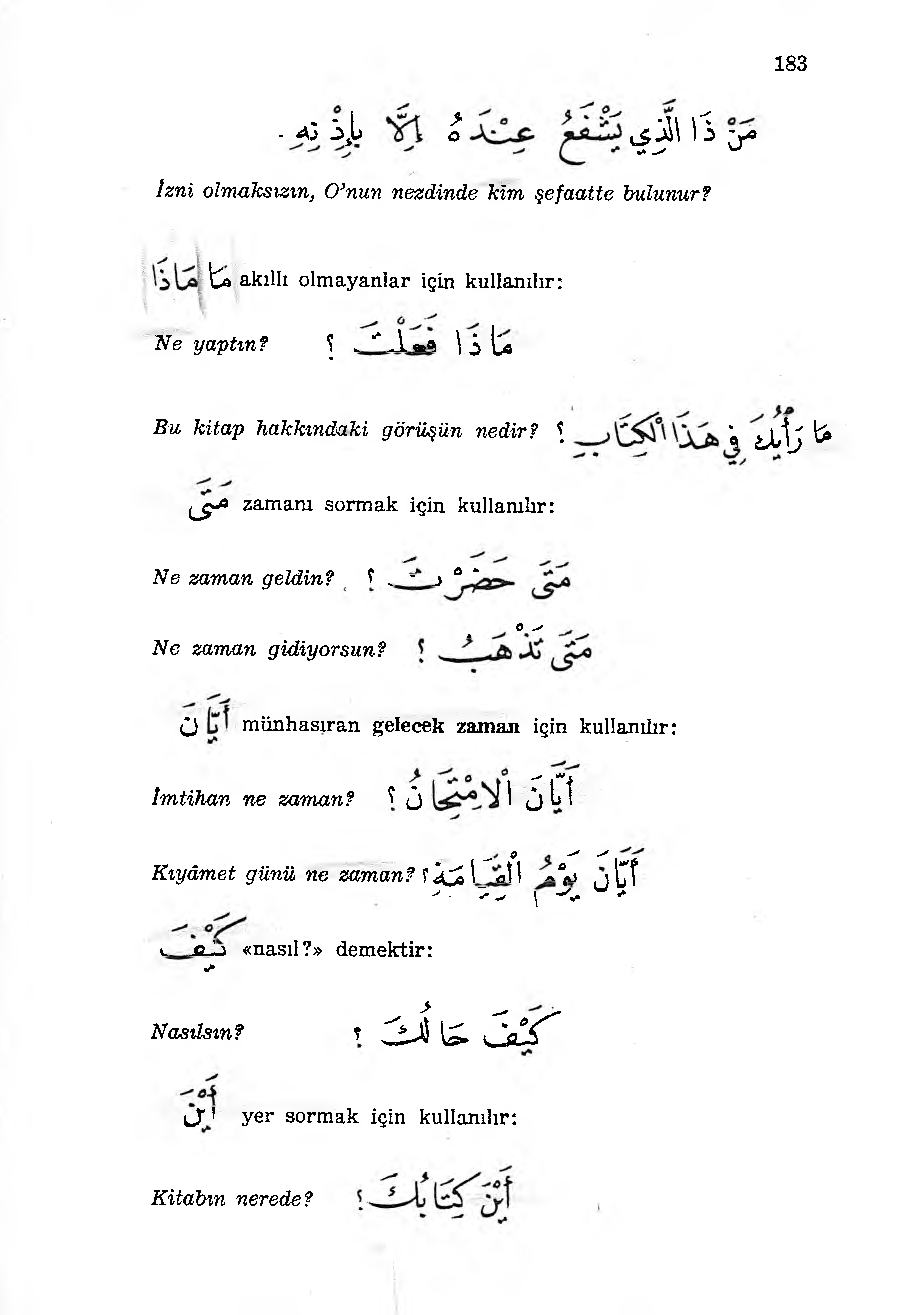 183
مَنْ ذَا الَّذِي يَشْفَعُ عِنْدَهُ إِلَّا بِإِذْنِهِ .
İzni olmaksızın, O’nun nezdinde kim şefaatte bulunur?
مَا مَاذَا akıllı olmayanlar için kullanılır:
Ne yaptın? مَاذَا فَعَلْتَ ؟
Bu kitap hakkındaki görüşün nedir? مَا رَأْيُكَ فِي هَذَا الْكِتَابِ ؟
مَتَى zamanı sormak için kullanılır:
Ne zaman geldin? مَتَى حَضَرْتَ ؟
Ne zaman gidiyorsun? مَتَى تَذْهَبُ ؟
أَيَّانَ münhasıran gelecek zaman için kullanılır:
İmtihan ne zaman? أَيَّانَ الْاِمْتِحَانُ ؟
Kıyâmet günü ne zaman? أَيَّانَ يَوْمُ الْقِيَامَةِ ؟
كَيْفَ «nasıl?» demektir:
Nasılsın? كَيْفَ حَالُكَ ؟
أَيْنَ yer sormak için kullanılır:
Kitabın nerede? أَيْنَ كِتَابُكَ ؟